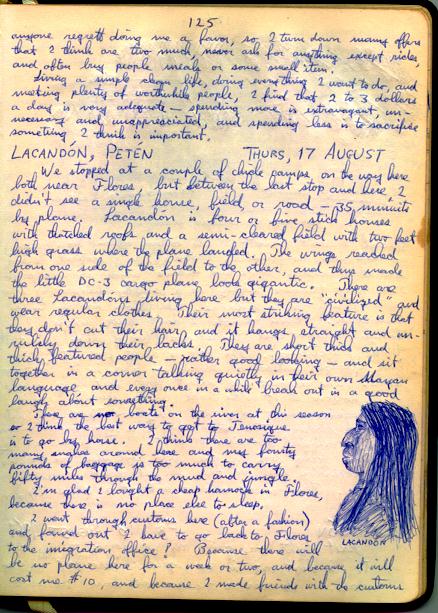 125
anyone regrett doing me a favor, so I turn down many offers
that I think are two much, never ask for anything except rides
and often buy people meals or some small item.
Living a simple clean life, doing everything I want to do, and
meeting plenty of worthwhile people, I find that 2 to 3 dollars
a day is very adequate — spending more is extravagant, un-
necessary and unappreciated, and spending less is to sacrifice
something I think is important.
LACANDÓN, PETÉN THURS, 17 AUGUST
We stopped at a couple of chicle camps on the way here
both near Flores, but between the last stop and here, I
didn't see a single house, field or road — 35 minuits
by plane. Lacandón is four or five stick houses
with thatched roofs and a semi-cleared field with two feet
high grass where the plane landed. The wings reached
from one side of the field to the other, and thus made
the little DC-3 cargo plane look gigantic. There are
three Lacandons living here but they are "civilized" and
wear regular clothes. Their most striking feature is that
they don't cut their hair and it hangs straight and un-
rulely down their backs. They are short thick and
thick featured people — rather good looking — and sit
together in a corner talking quietly in their own Mayan
language and every once in a while break out in a good
laugh about something.
There are no boats on the river at this season
so I think the best way to get to Tenosique
is to go by horse. I think there are too
many snakes around here and my fourty
pounds of baggage is too much to carry
fifty miles through the mud and jungle.
I'm glad I bought a cheap hammock in Flores,
because there is no place else to sleep.
I went through customs here (after a fashion)
and found out I have to go back to Flores
to the imigration office! Because there will
be no plane here for a week or two, and because it will
cost me $10 and because I made friends with the customs
LACANDÓN